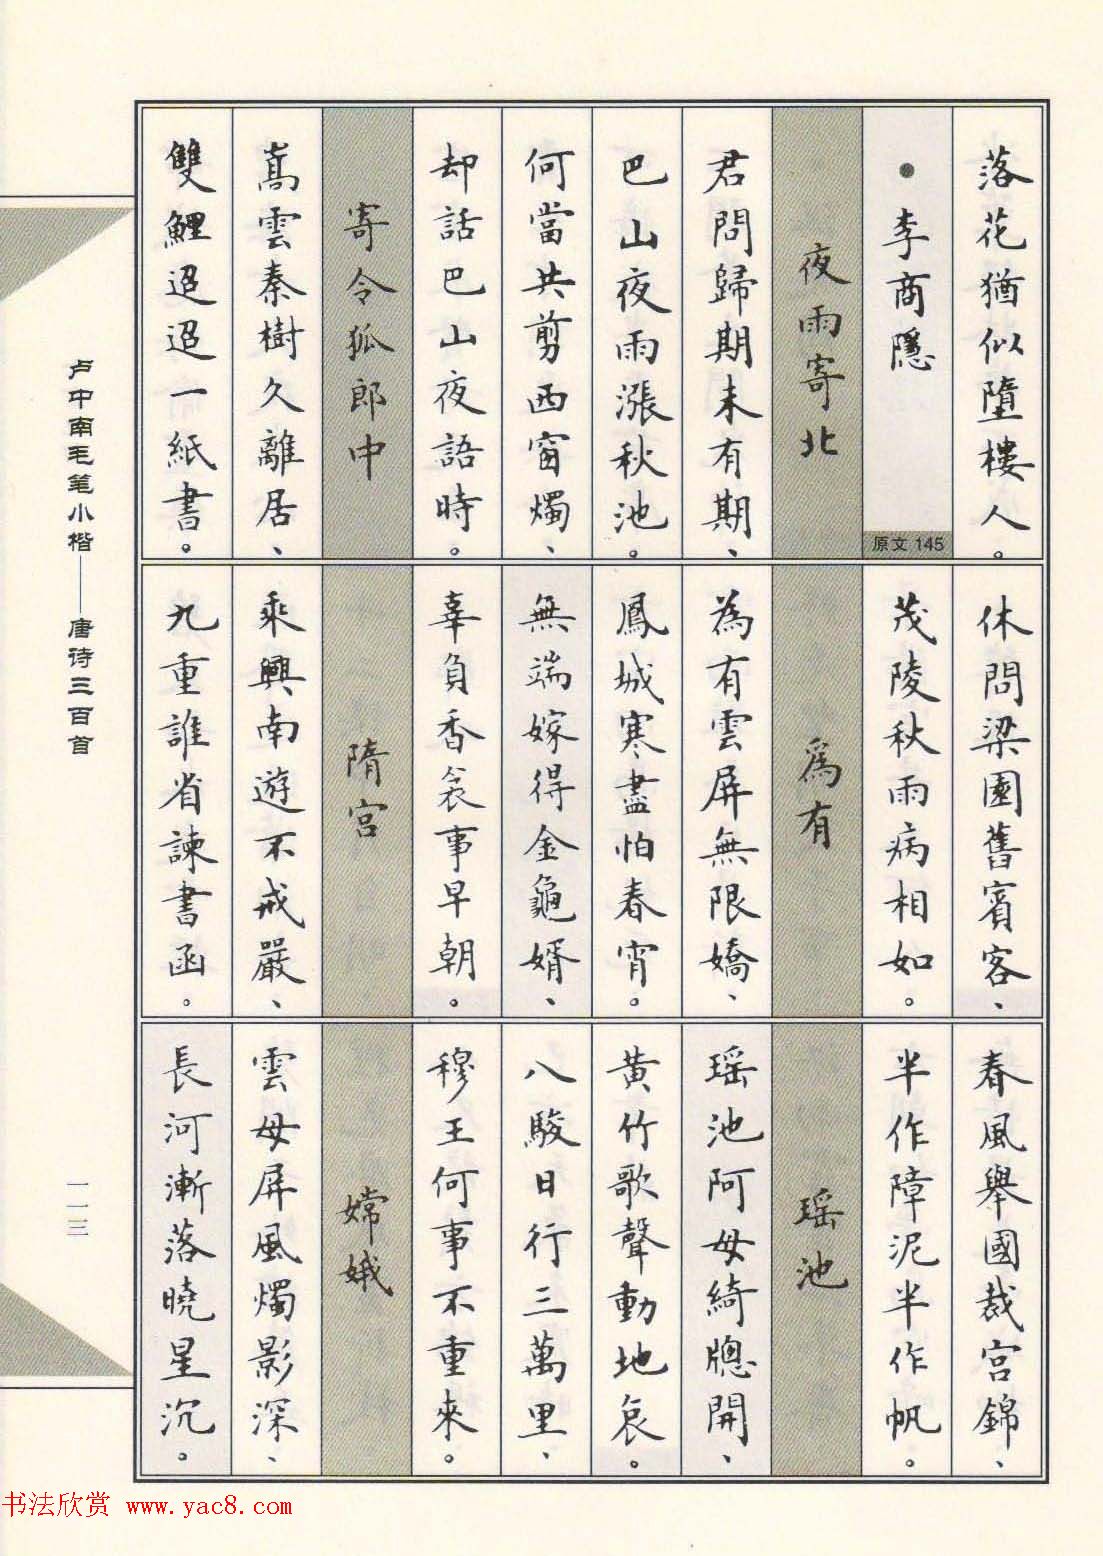 落花猶似墮樓人。
•李商隱
原文 145
夜雨寄北
君問歸期未有期、
巴山夜雨漲秋池。
何當共剪西窗燭、
却話巴山夜語時。
寄令狐郎中
嵩雲秦樹久離居、
雙鯉迢迢一紙書。
休問梁園舊賓客、
茂陵秋雨病相如。
為有
為有雲屏無限嬌、
鳳城寒盡怕春宵。
無端嫁得金龜婿、
辜負香衾事早朝。
隋宮
乘興南遊不戒嚴、
九重誰省諫書函。
春風舉國裁宮錦、
半作障泥半作帆。
瑶池
瑶池阿母綺牕開、
黃竹歌聲動地哀。
八駿日行三萬里、
穆王何事不重來。
嫦娥
雲母屏風燭影深、
長河漸落曉星沉。
卢中南毛笔小楷——唐诗三百首
一一三
书法欣赏 www.yac8.com